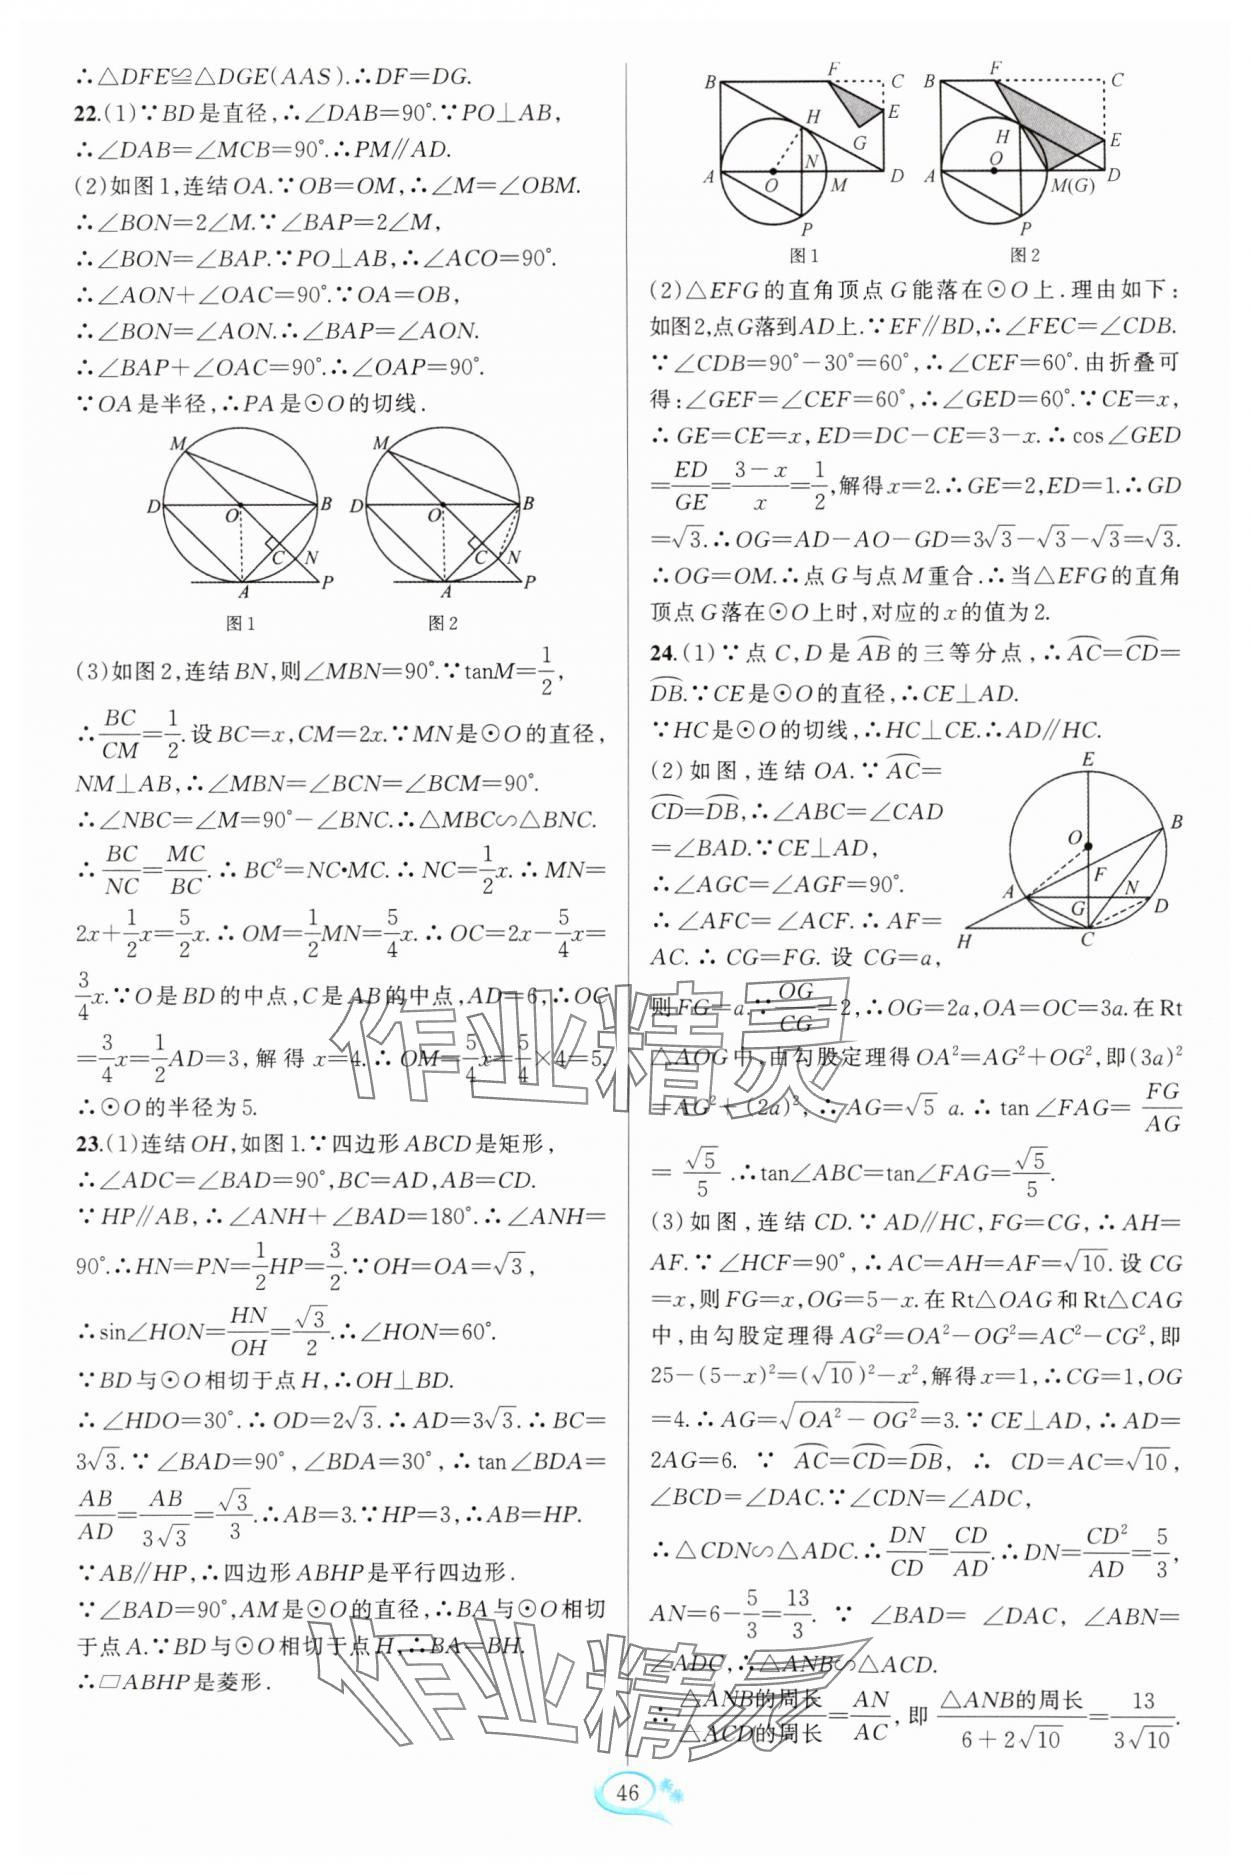 ∴△DFE≌△DGE(AAS).∴DF=DG.
22.(1)∵BD是直径,∴∠DAB=90°.∵PO⊥AB,
∴∠DAB=∠MCB=90°.∴PM∥AD.
(2)如图1,连结OA.∵OB=OM,∴∠M=∠OBM.
∴∠BON=2∠M.∵∠BAP=2∠M,
∴∠BON=∠BAP.∵PO⊥AB,∴∠ACO=90°.
∴∠AON+∠OAC=90°.∵OA=OB,
∴∠BON=∠AON.∴∠BAP=∠AON.
∴∠BAP+∠OAC=90°.∴∠OAP=90°.
∵OA是半径,∴PA是⊙O的切线.
M D O B C N A P
图1
M D O B C N A P
图2
(3)如图2,连结BN,则∠MBN=90°.∵tanM=1/2,
∴BC/CM=1/2.设BC=x,CM=2x.∵MN是⊙O的直径,
NM⊥AB,∴∠MBN=∠BCN=∠BCM=90°.
∴∠NBC=∠M=90°-∠BNC.∴△MBC∽△BNC.
∴BC/NC=MC/BC.∴BC²=NC·MC.∴NC=1/2x.∴MN=
2x+1/2x=5/2x.∴OM=1/2MN=5/4x.∴OC=2x-5/4x=
3/4x.∵O是BD的中点,C是AB的中点,AD=6,∴OC
=3/4x=1/2AD=3,解得x=4.∴OM=5/4x=5/4×4=5,
∴⊙O的半径为5.
23.(1)连结OH,如图1.∵四边形ABCD是矩形,
∴∠ADC=∠BAD=90°,BC=AD,AB=CD.
∵HP∥AB,∴∠ANH+∠BAD=180°.∴∠ANH=
90°.∴HN=PN=1/2HP=3/2.∵OH=OA=√3,
∴sin∠HON=HN/OH=√3/2.∴∠HON=60°.
∵BD与⊙O相切于点H,∴OH⊥BD.
∴∠HDO=30°.∴OD=2√3.∴AD=3√3.∴BC=
3√3.∵∠BAD=90°,∠BDA=30°,∴tan∠BDA=
AB/AD=AB/3√3=√3/3.∴AB=3.∵HP=3,∴AB=HP.
∵AB∥HP,∴四边形ABHP是平行四边形.
∵∠BAD=90°,AM是⊙O的直径,∴BA与⊙O相切
于点A.∵BD与⊙O相切于点H,∴BA=BH.
∴▱ABHP是菱形.
B F C E H G N A O M D P
图1
B F C E H O A M(G) D P
图2
(2)△EFG的直角顶点G能落在⊙O上.理由如下:
如图2,点G落到AD上.∵EF∥BD,∴∠FEC=∠CDB.
∵∠CDB=90°-30°=60°,∴∠CEF=60°.由折叠可
得:∠GEF=∠CEF=60°,∴∠GED=60°.∵CE=x,
∴GE=CE=x,ED=DC-CE=3-x.∴cos∠GED
=ED/GE=3-x/x=1/2,解得x=2.∴GE=2,ED=1.∴GD
=√3.∴OG=AD-AO-GD=3√3-√3-√3=√3.
∴OG=OM.∴点G与点M重合.∴当△EFG的直角
顶点G落在⊙O上时,对应的x的值为2.
24.(1)∵点C,D是⌒AB的三等分点,∴⌒AC=⌒CD=
⌒DB.∵CE是⊙O的直径,∴CE⊥AD.
∵HC是⊙O的切线,∴HC⊥CE.∴AD∥HC.
(2)如图,连结OA.∵⌒AC=
⌒CD=⌒DB,∴∠ABC=∠CAD
=∠BAD.∵CE⊥AD,
∴∠AGC=∠AGF=90°.
∴∠AFC=∠ACF.∴AF=
AC.∴CG=FG.设CG=a,
E B O F A N G D H C
则FG=a.∵OG/CG=2,∴OG=2a,OA=OC=3a.在Rt
△AOG中,由勾股定理得OA²=AG²+OG²,即(3a)²
=AG²+(2a)²,∴AG=√5 a.∴tan∠FAG=FG/AG
=√5/5.∴tan∠ABC=tan∠FAG=√5/5.
(3)如图,连结CD.∵AD∥HC,FG=CG,∴AH=
AF.∵∠HCF=90°,∴AC=AH=AF=√10.设CG
=x,则FG=x,OG=5-x.在Rt△OAG和Rt△CAG
中,由勾股定理得AG²=OA²-OG²=AC²-CG²,即
25-(5-x)²=(√10)²-x²,解得x=1,∴CG=1,OG
=4.∴AG=√(OA²-OG²)=3.∵CE⊥AD,∴AD=
2AG=6.∵⌒AC=⌒CD=⌒DB,∴CD=AC=√10,
∠BCD=∠DAC.∵∠CDN=∠ADC,
∴△CDN∽△ADC.∴DN/CD=CD/AD.∴DN=CD²/AD=5/3,
AN=6-5/3=13/3.∵∠BAD=∠DAC,∠ABN=
∠ADC,∴△ANB∽△ACD.
∴△ANB的周长/△ACD的周长=AN/AC,即△ANB的周长/6+2√10=13/3√10.
作业精灵
作业精灵
46